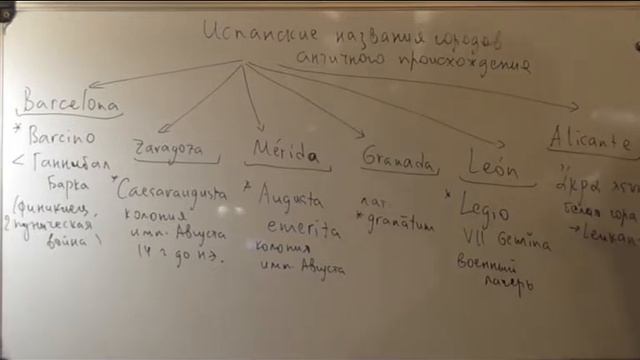 Испанские названия городов
античного происхождения
Barcelona
* Barcino
< Ганнибал
Барка
(финикиец,
2 пуническая
война)
Zaragoza
* Caesaraugusta
колония
имп. Августа
14 г до н.э.
Mérida
* Augusta
emerita
колония
имп. Августа
Granada
лат.
* granātum
León
* Legio
VII Gemina
военный
лагерь
Alicante
άκρα
белая гора
→ Leukan